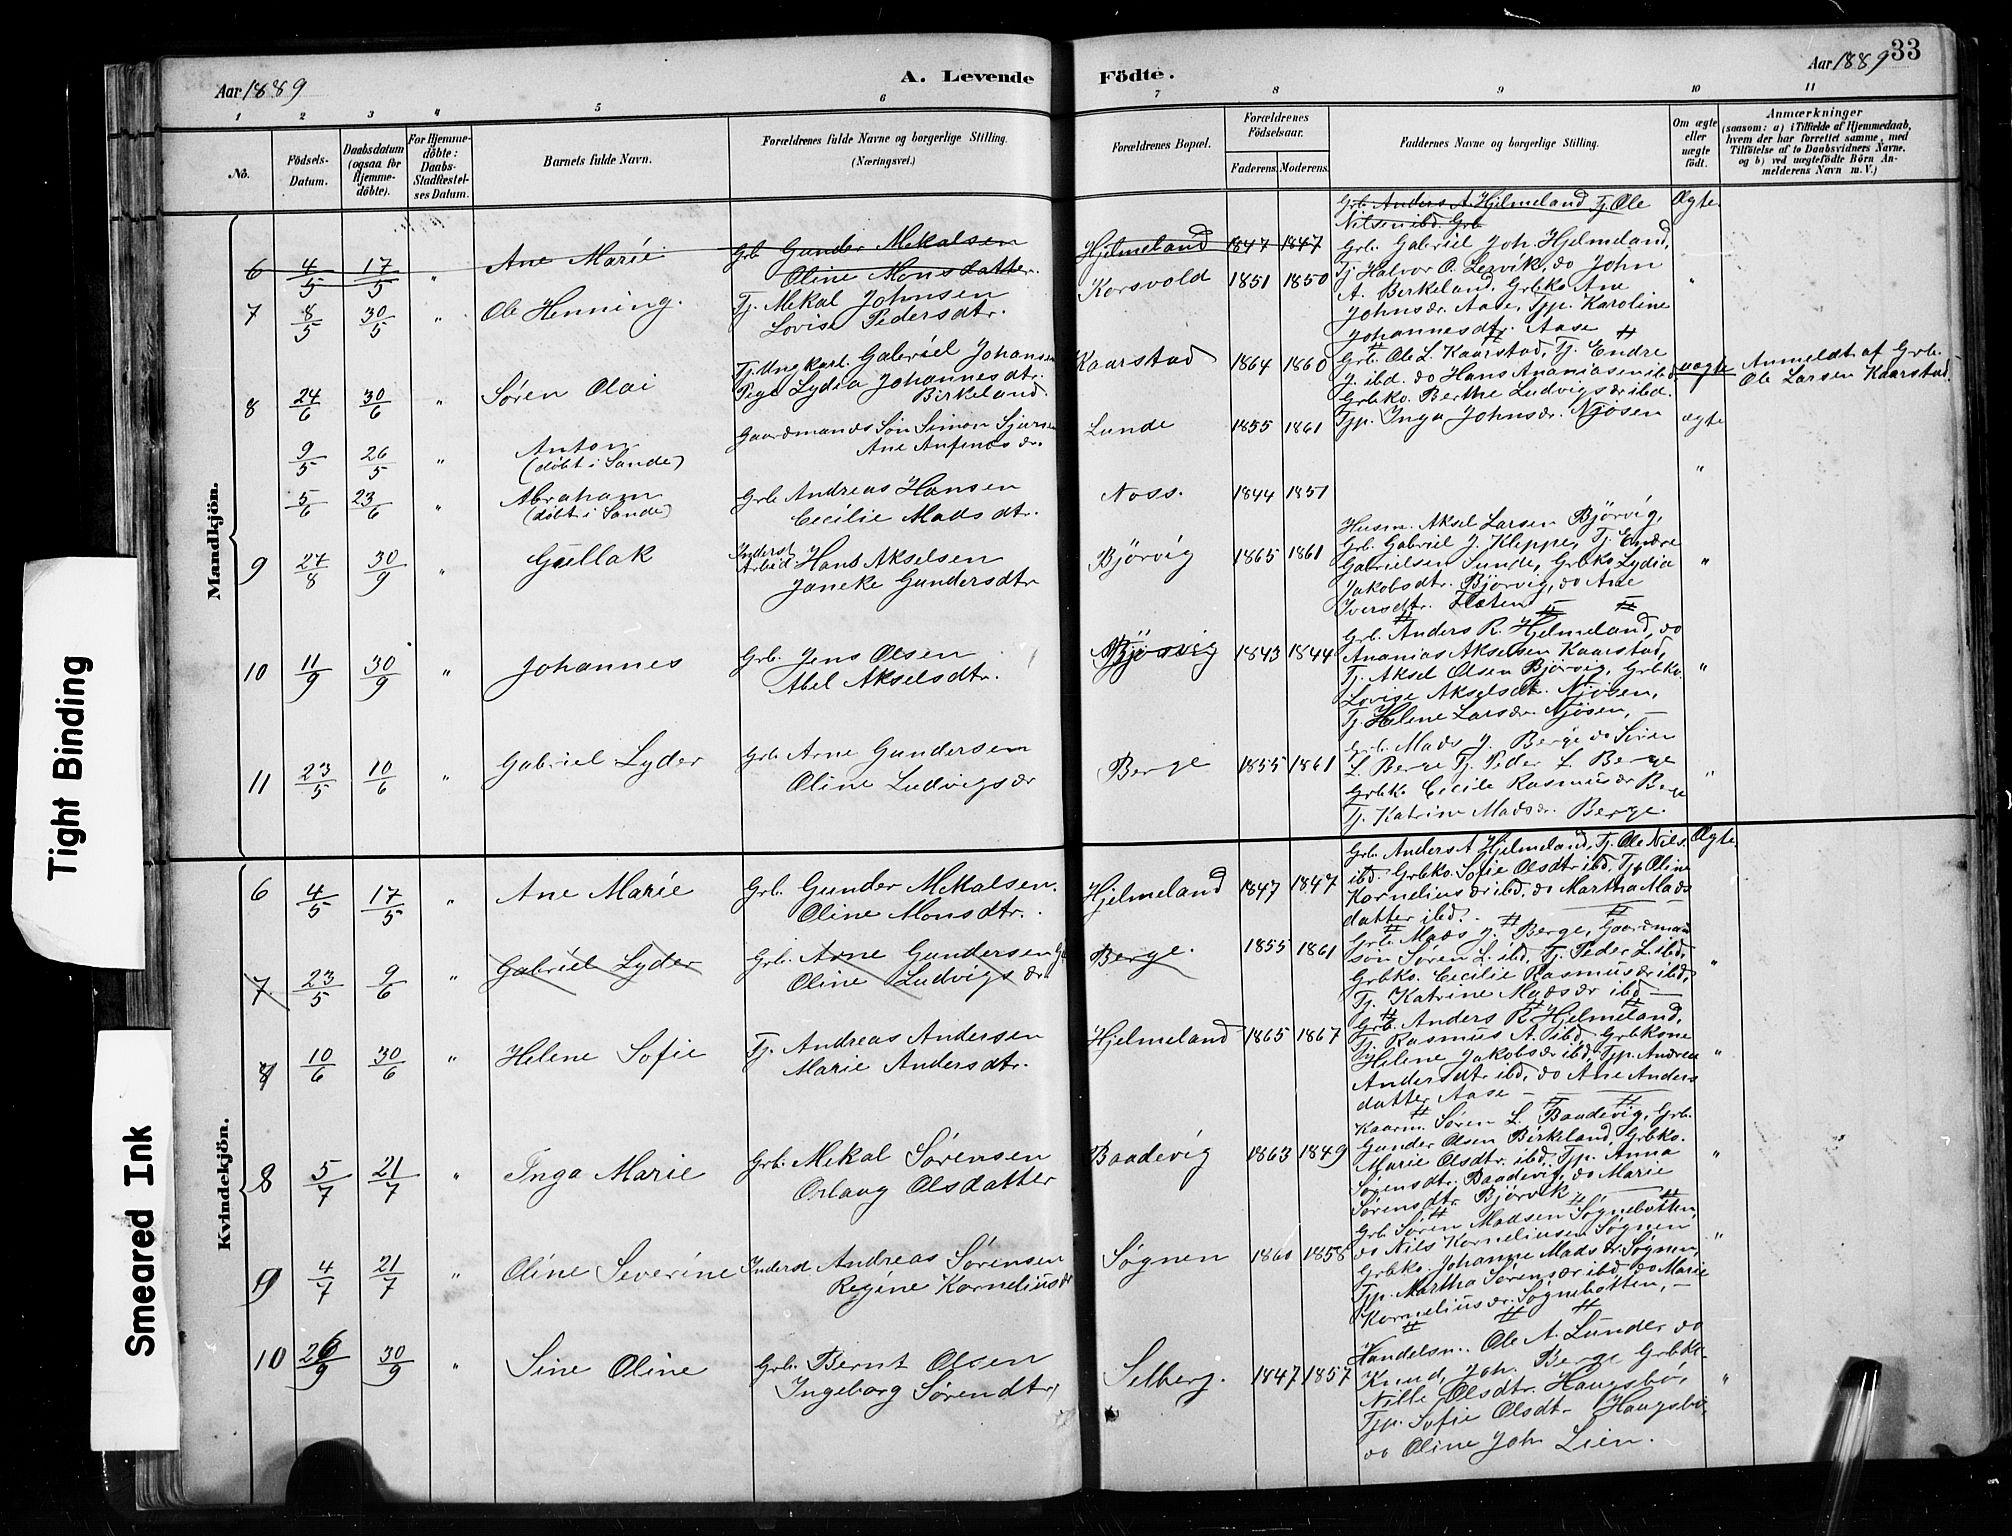 33
Aar 1889
A. Levende Födte.
Aar 1889
1 2 3 4 5 6 7 8 9 10 11
No.
Födsels-Datum.
Daabsdatum (ogsaa for Hjemme-döbte).
For Hjemme-döbte: Daabs-Stadfæstel-ses Datum.
Barnets fulde Navn.
Forældrenes fulde Navne og borgerlige Stilling.
(Næringsvei.)
Forældrenes Bopæl.
Forældrenes Födselsaar.
Faderens. Moderens.
Faddernes Navne og borgerlige Stilling.
Om ægte eller uægte födt.
Anmærkninger
(saasom: a) i Tilfælde af Hjemmedaab,
hvem der har forrettet samme, med
Tilföielse af to Daabsvidners Navne.
og b) ved uægtefödte Börn An-
melderens Navn m. V.)
Mandkjön.
6 4/5 17/5 " Ane Marie
Grb. Gunder Mekalsen
Oline Monsdatter.
Hjelmeland 1847 1847
Grb. Anders A. Hjelmeland Tj. Ole
Nilsen ibd. Grb
Ægte
7 8/5 30/5 " Ole Henning.
Tj. Mekal Johnsen
Lovise Pedersdtr.
Korsvold 1851 1850
Grb. Gabriel Joh. Hjelmeland,
Tj. Halvor O. Lervik, do John
A. Birkeland, Grbko Ane
Johnsdr. Aase, Tjp. Karoline
Johannesdtr. Aase
"
8 24/6 30/6 " Søren Olai
Tj. Ungkarl. Gabriel Johansen
Pige Lydia Johannesdtr.
Birkeland.
Kaarstad 1864 1860
Grb. Ole L. Kaarstad, Tj. Endre
J. ibd. do Hans Ananiasen ibd,
Grbko. Berthe Ludvigsdr ibd.
Tjp. Inga Johnsdr. Njøsen
uægte
Anmeldt af Grb.
Ole Larsen Kaarstad.
9/5 26/5 " Anton
(døbt i Sande)
Gaardmands Søn Simon Sjursen
Ane Anfinnsdr.
Lunde 1855 1861
ægte
5/6 23/6 " Abraham
(døbt i Sande)
Grb Andreas Hansen
Cecilie Madsdtr.
Noss. 1844 1851
"
9 27/8 30/9 " Gullak
Inderst Arbeid. Hans Akselsen
Janeke Gundersdtr
Bjørvig 1865 1861
Husm. Aksel Larsen Bjørvig,
Grb. Gabriel J. Kleppe, Tj. Endre
Gabrielsen Sunde, Grbko Lydia
Jakobsdtr. Bjørvig, do Ane
Iversdtr. Flæten
"
10 11/9 30/9 " Johannes
Grb. Jens Olsen
Abel Akselsdtr.
Bjørvig 1843 1844
Grb. Anders R. Hjelmeland, do
Ananias Akselsen Kaarstad,
Tj. Aksel Olsen Bjørvig, Grbko.
Lovise Akselsdt. Njøsen,
Tj. Helene Larsdr. Njøsen, —
"
11 23/5 10/6 " Gabriel Lyder
Grb. Arne Gundersen
Oline Ludvigsdr
Berge 1855 1861
Grb. Mads J. Berge do Søren
L. Berge Tj. Peder L Berge
Grbko. Cecilie Rasmusdr Berge
Tj. Katrine Madsdr. Berge.
"
Kvindekjön.
6 4/5 17/5 " Ane Marie
Grb. Gunder Mekalsen.
Oline Monsdtr.
Hjelmeland 1847 1847
Grb. Anders A Hjelmeland, Tj. Ole Nils.
ibd. Grbko. Sofie Olsdtr ibd, Tjp Oline
Korneliusdr ibd, do Martha Mads
datter ibd.
Ægte
7 23/5 9/6 " Gabriel Lyder
Grb. Arne Gundersen
Oline Ludvigsdr
Berge. 1855 1861
Grb. Mads J. Berge, Gaardmand
søn Søren L. ibd, Tj. Peder L. ibd,
Grbko. Cecilie Rasmusdr ibd,
Tj. Katrine Madsdr ibd —
"
7 10/6 30/6 " Helene Sofie
Tj. Andreas Andersen
Marie Andersdtr.
Hjelmeland 1865 1867
Grb. Anders R. Hjelmeland,
Tj. Rasmus A. ibd, Grbkone
Helene Jakobsdr ibd, Tjp. Andrea
Andersdtr ibd, do Ane Anders
datter Aase —
"
8 5/7 21/7 " Inga Marie
Grb. Mekal Sørensen
Orlaug Olsdatter
Baadevig 1863 1849
Kaarm. Søren L. Baadevig, Grb.
Gunder Olsen Birkeland, Grbko.
Marie Olsdtr. ibd, Tjp. Anna
Sørensdtr. Baadevig, do Marie
Sørensdtr Bjørvik
"
9 4/7 21/7 " Oline Severine
Inderst Andreas Sørensen
Regine Korneliusdr
Søgnen 1860 1858
Grb. Søren Madsen Søgnebotten,
do Nils Korneliusen Søgnen
Grbko. Johanne Madsdr. Søgnen,
Tjp. Martha Sørensdr ibd, do Marie
Korneliusdr. Søgnebotten, —
"
10 26/9 30/9 " Sine Oline
Grb. Bernt Olsen
Ingeborg Sørendtr.
Selberg. 1847 1857
Handelsm. Ole A. Lunder do
Knud Joh. Berge Grbk.
Nille Olsdtr. Haugsbø,
Tjp. Sofie Olsdtr. Haugsbø,
do Oline Joh. Lien.
"
Tight Binding
Smeared Ink